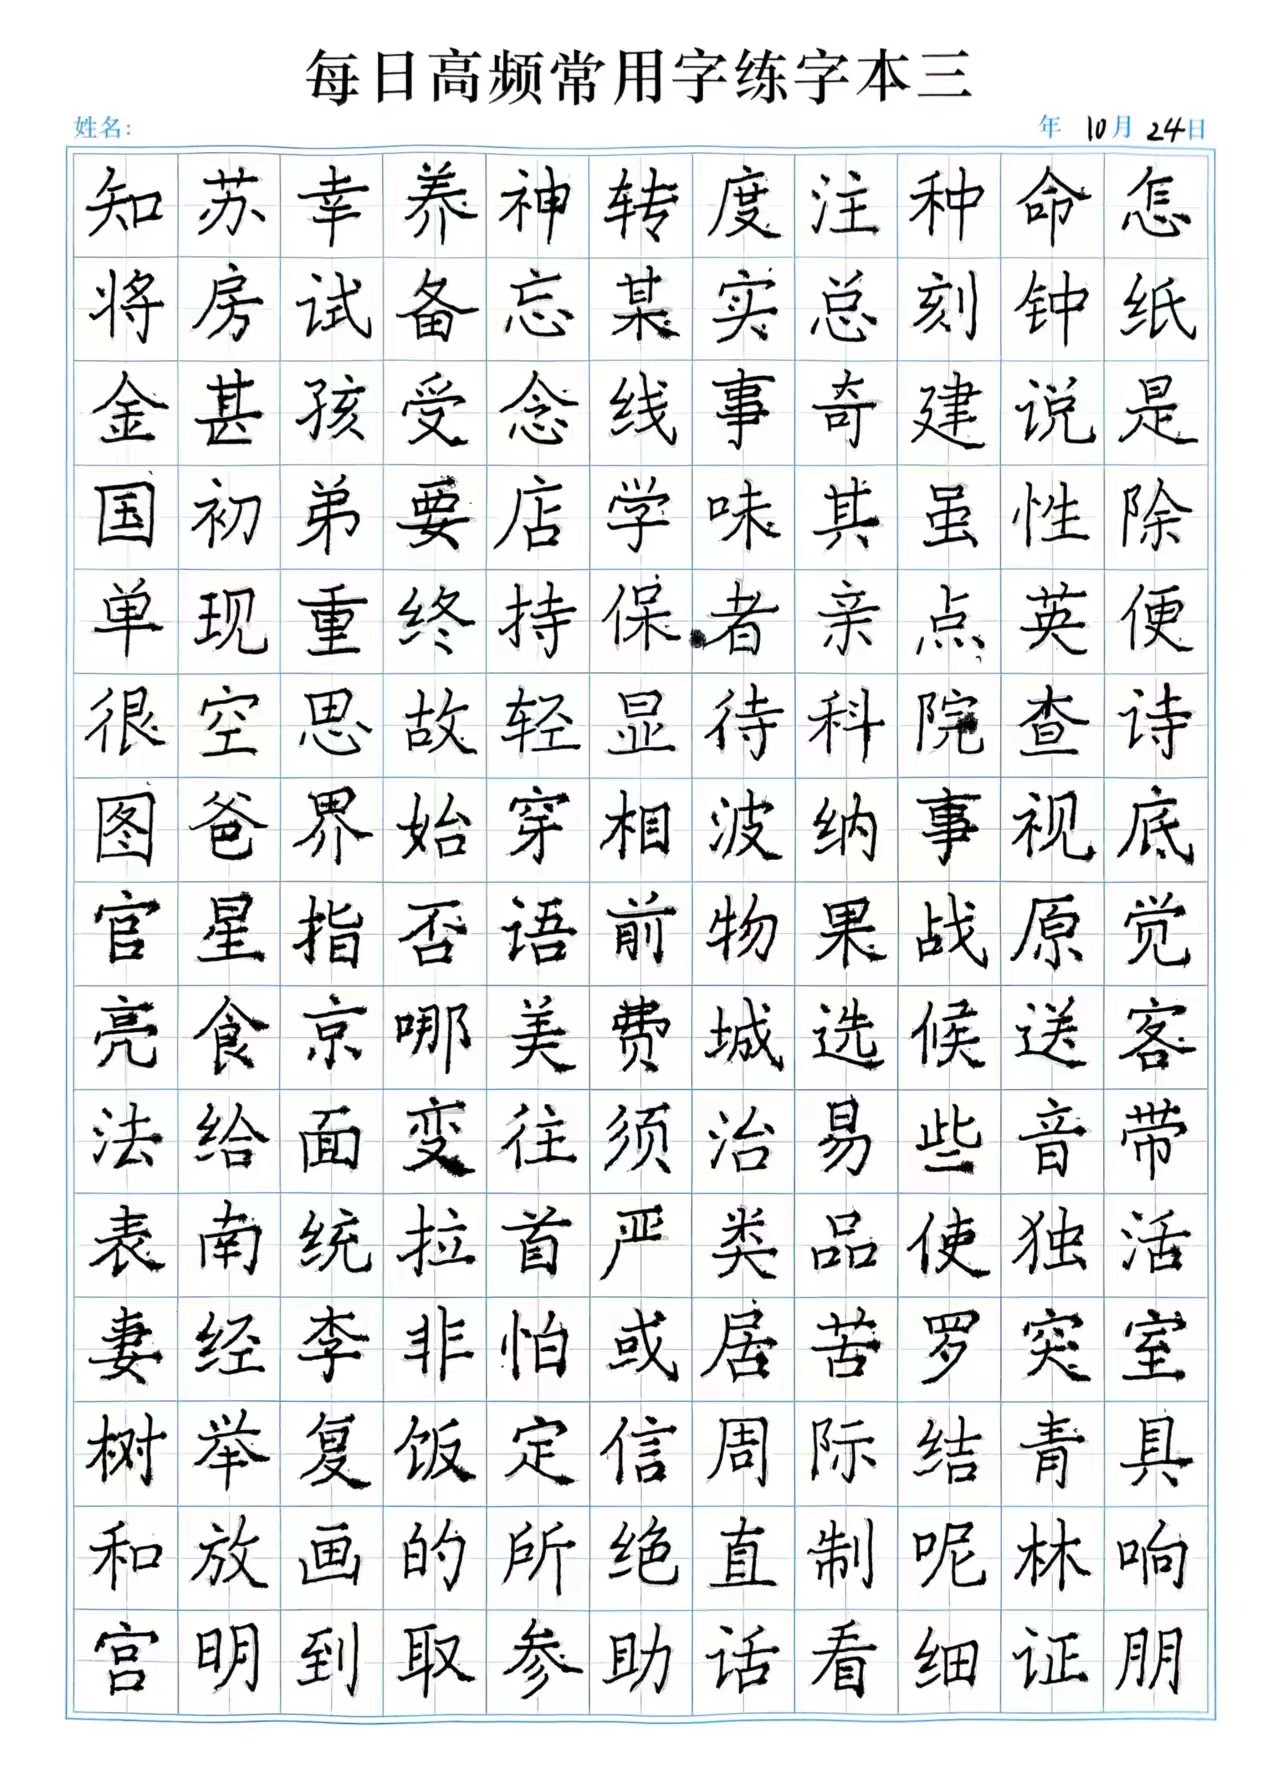 每日高频常用字练字本三
姓名： 年 10月 24日
知苏幸养神转度注种命怎
将房试备忘某实总刻钟纸
金甚孩受念线事奇建说是
国初弟要店学味其虽性除
单现重终持保者亲点英便
很空思故轻显待科院查诗
图爸界始穿相波纳事视底
官星指否语前物果战原觉
亮食京哪美费城选候送客
法给面变往须治易些音带
表南统拉首严类品使独活
妻经李非怕或居苦罗突室
树举复饭定信周际结青具
和放画的所绝直制呢林响
宫明到取参助话看细证朋